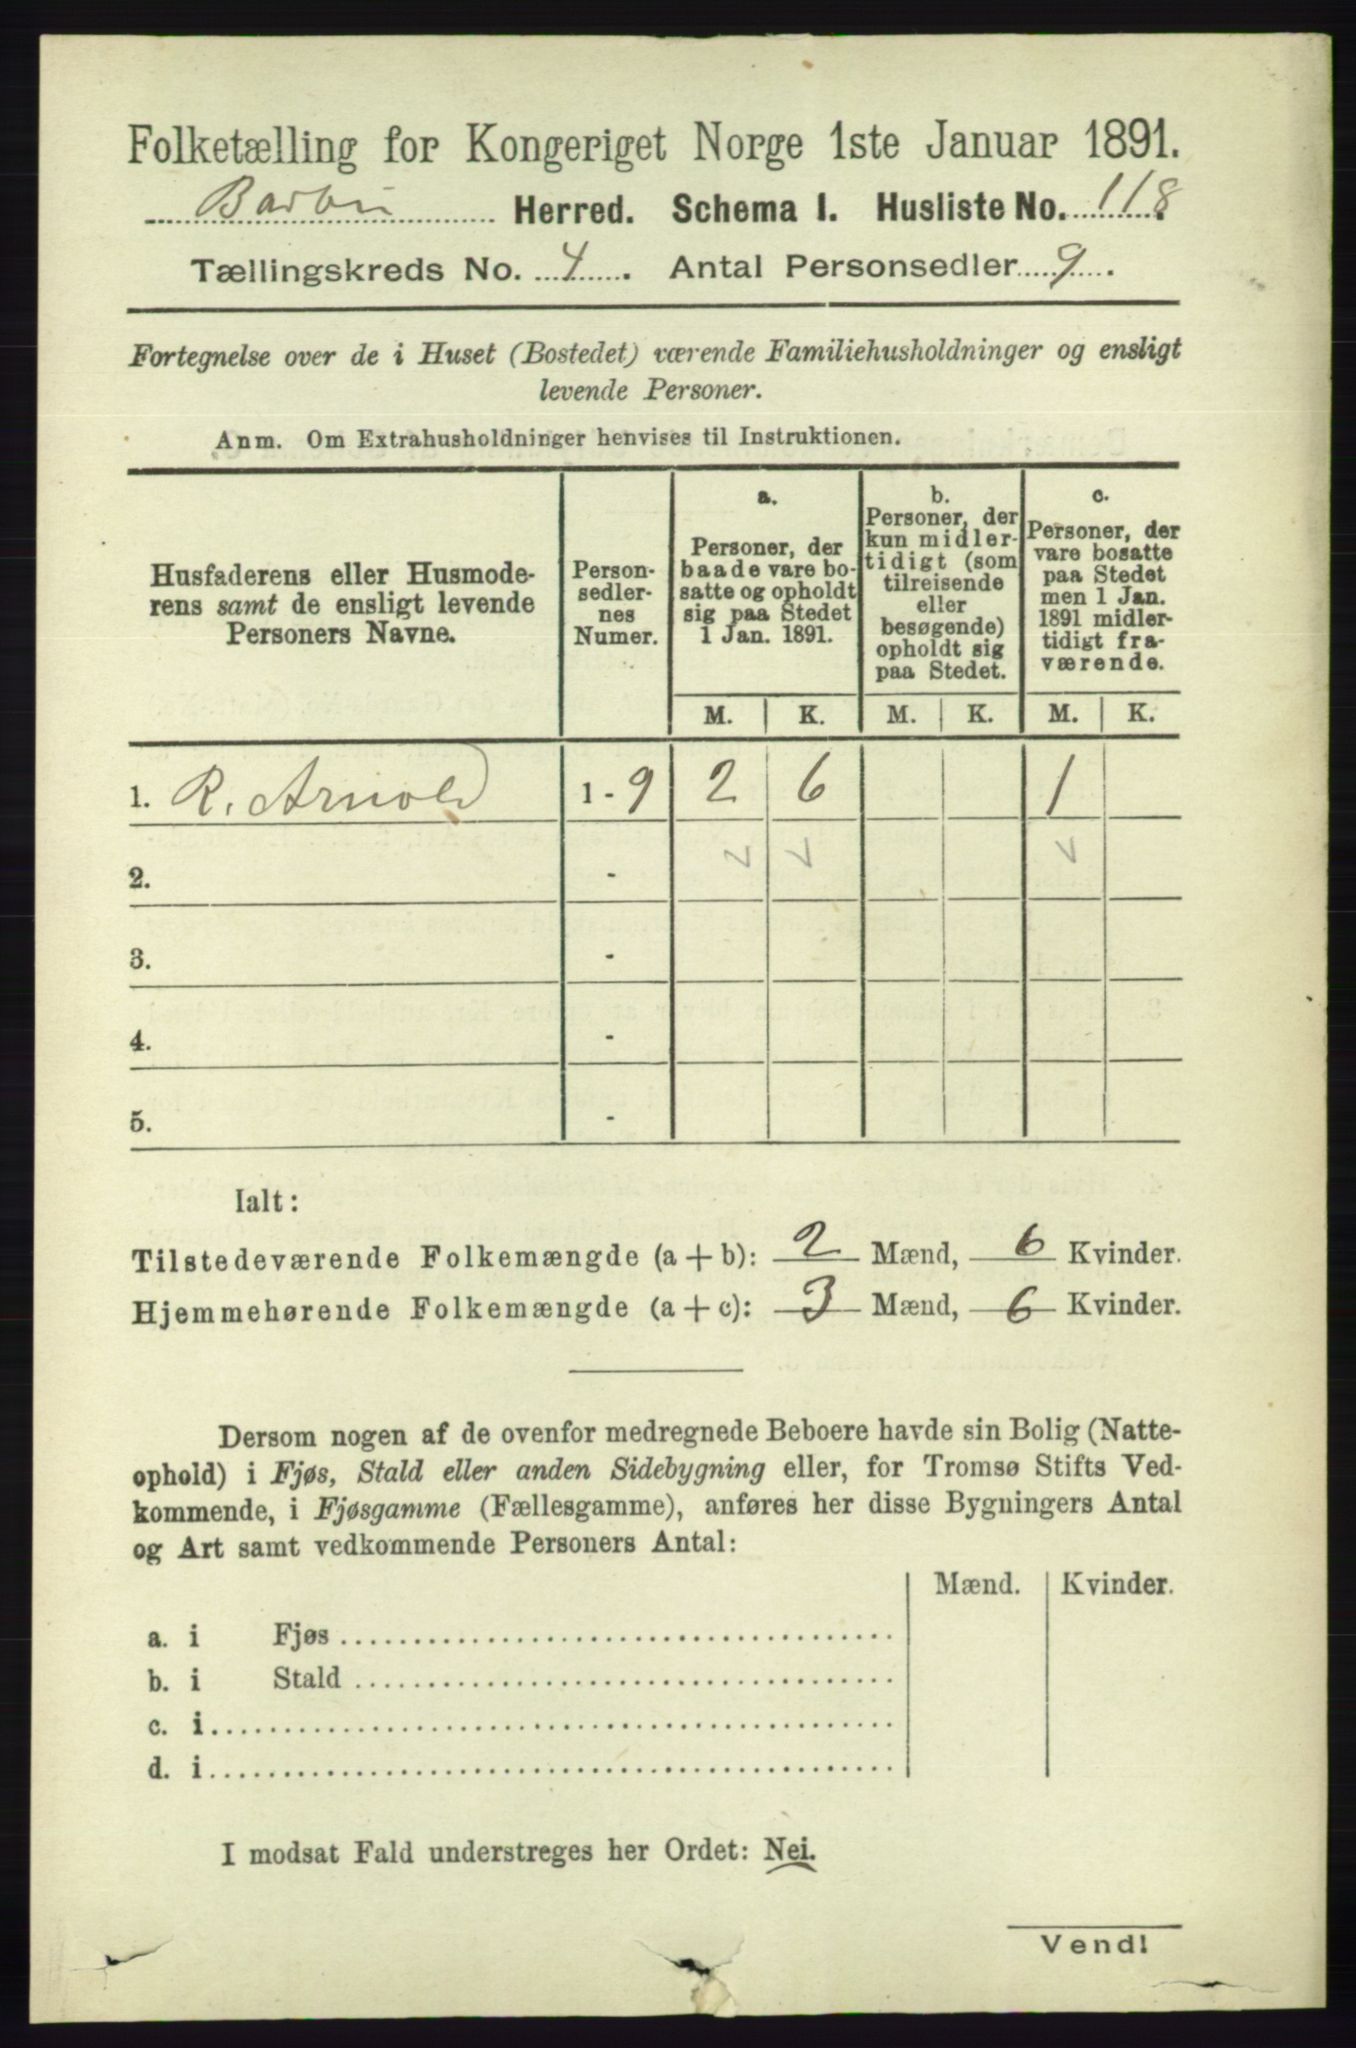 Folketælling for Kongeriget Norge 1ste Januar 1891.
Barbu Herred. Schema I. Husliste No. 118.
Tællingskreds No. 4. Antal Personsedler 9.
Fortegnelse over de i Huset (Bostedet) værende Familiehusholdninger og ensligt
levende Personer.
Anm. Om Extrahusholdninger henvises til Instruktionen.
Husfaderens eller Husmode-
rens samt de ensligt levende
Personers Navne.
Person-
sedler-
nes
Numer.
a.
Personer, der
baade vare bo-
satte og opholdt
sig paa Stedet
1 Jan. 1891.
b.
Personer, der
kun midler-
tidigt (som
tilreisende
eller
besøgende)
opholdt sig
paa Stedet.
c.
Personer, der
vare bosatte
paa Stedet
men 1 Jan.
1891 midler-
tidigt fra-
værende.
M. K. M. K. M. K.
1. R. Arnold 1 - 9 2 6 1
2. -
3. -
4. -
5. -
Ialt:
Tilstedeværende Folkemængde (a + b): 2 Mænd, 6 Kvinder.
Hjemmehørende Folkemængde (a + c): 3 Mænd, 6 Kvinder.
Dersom nogen af de ovenfor medregnede Beboere havde sin Bolig (Natte-
ophold) i Fjøs, Stald eller anden Sidebygning eller, for Tromsø Stifts Ved-
kommende, i Fjøsgamme (Fællesgamme), anføres her disse Bygningers Antal
og Art samt vedkommende Personers Antal:
Mænd. Kvinder.
a. i Fjøs
b. i Stald
c. i
d. i
I modsat Fald understreges her Ordet: Nei.
Vend!